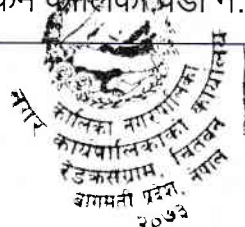 कालिका वडा नं.
कालिका नगरपालिका
नगर कार्यपालिकाको कार्यालय
रेडक्रसग्राम, चितवन
बागमती प्रदेश, नेपाल
२०७३